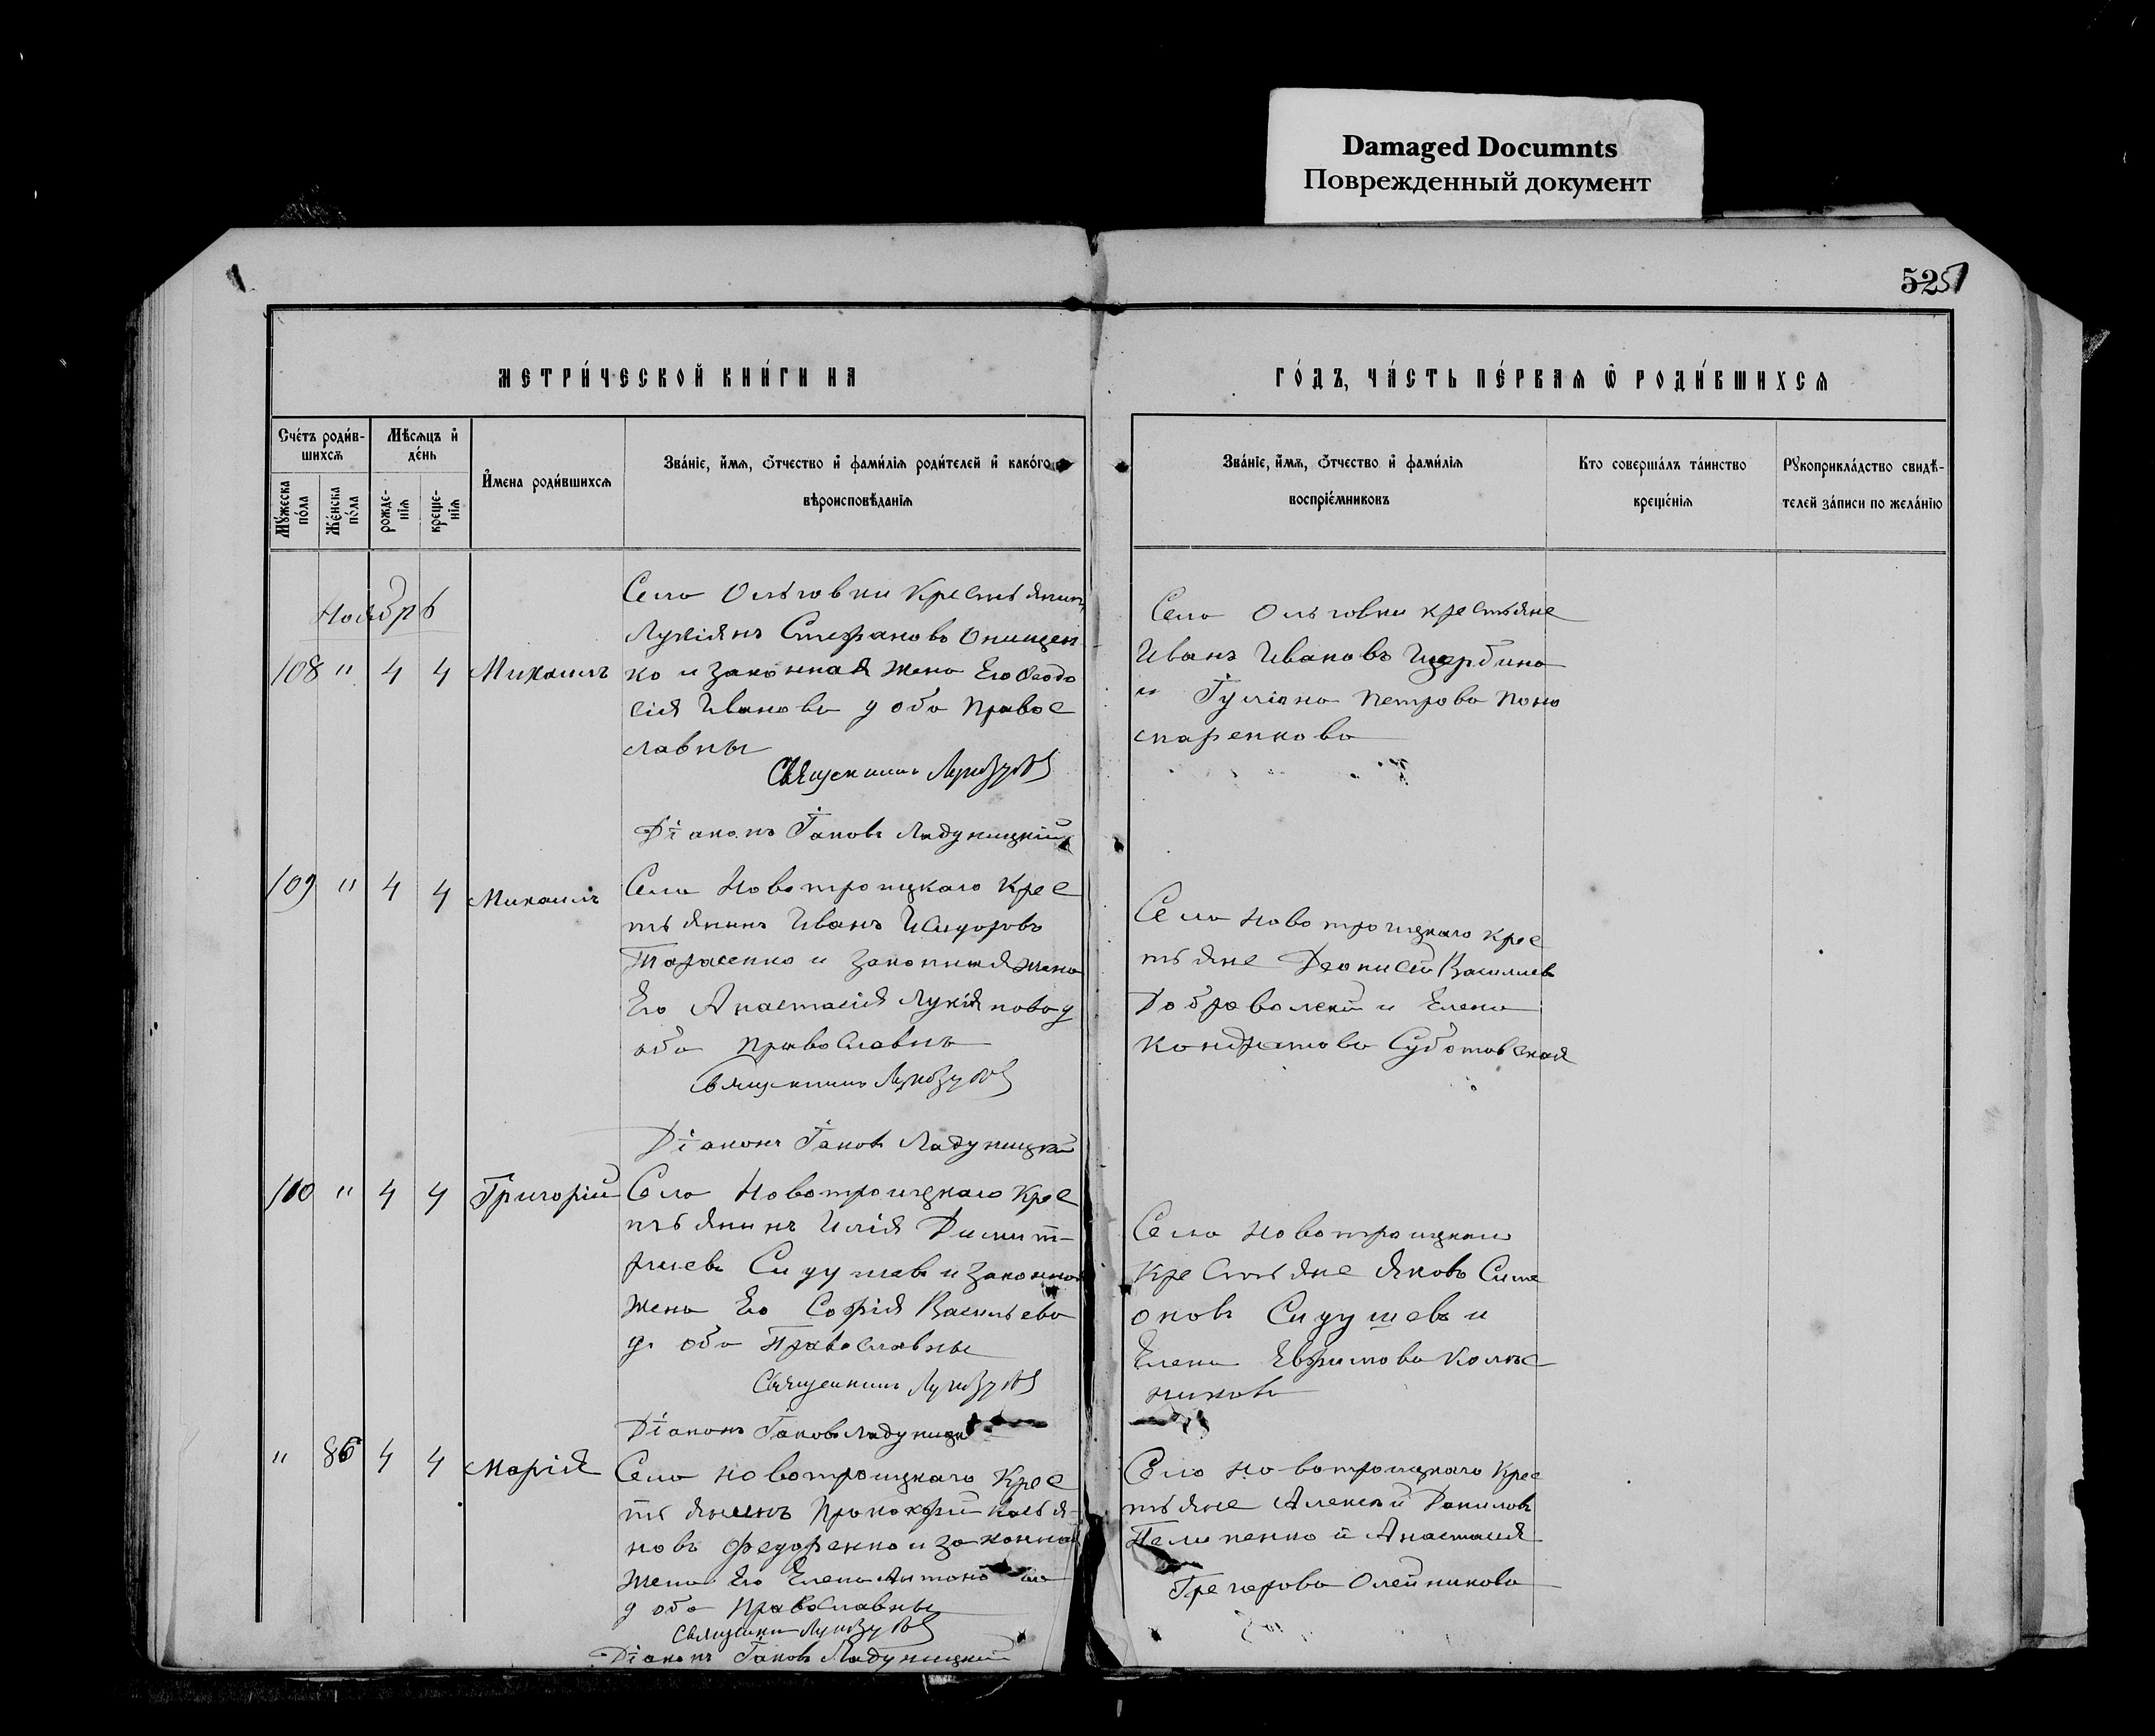 Damaged Documnts
Поврежденный документ
525
МЕТРИ́ЧЕСКОЙ КНИ́ГИ НА
ГО́ДЪ, ЧА́СТЬ ПЕ́РВАЯ Ѿ РОДИ́ВШИХСѦ
Сче́тъ роди́в-
шихсѧ
Мѣ́сѧцъ и҆
де́нь
И҆мена роди́вшихсѧ
Зва́нїе, и҆́мѧ, о҆́тчество и҆ фами́лїѧ роди́телей и҆ како́гѡ
вѣроисповѣ́данїѧ
Мꙋ́жеска
по́ла
Же́нска
по́ла
рожде-
нїѧ
креще-
нїѧ
Зва́нїе, и҆́мѧ, о҆́тчество и҆ фами́лїѧ
воспрїе́мниковъ
Кто соверша́лъ та́инство
креще́нїѧ
Рꙋкоприкла́дство свидѣ́-
телей за́писи по жела́нїю
Ноябрь
108 " 4 4 Михаилъ
Села Ольговки Крестьянинъ
Лукіянъ Стефановъ Онищен
ко и законная жена Его Феодо
сія Иванова д оба Правос
лавны
Священникъ
Діаконъ Іаковъ Ладуницкій
Села Ольговки крестьяне
Иванъ Ивановъ Щербина
и Іуліана Петрова Поно
маренкова
109 " 4 4 Михаилъ
Села Новотроицкаго Крес
тьянинъ Иванъ Исидоровъ
Тарасенко и законная жена
Его Анастасія Лукіянова д
оба православны
Священникъ
Діаконъ Іаковъ Ладуницкій
Села Новотроицкаго крес
тьяне Деонисій Василиев
Доброволскій и Елена
Кондратова Суботовская
110 " 4 4 Григорій
Села Новотроицкаго Крес
тьянинъ Илія Димит-
риевъ и законная
жена Его Софія Васильева
д оба Православны
Священникъ
Діаконъ Іаковъ Ладуницкій
Села Новотроицкаго
Крестьяне Яковъ Симе
оновъ и
Елена Евфимова Колес
никова
" 86 4 4 Марія
Села Новотроицкаго Крес
тьянинъ Прокофій Касья-
новъ Федоренко и законная
жена Его Елена
д оба Православны
Священникъ
Діаконъ Іаковъ Ладуницкій
Села Новотроицкаго Крес
тьяне Алексѣй Даниловъ
Пелипенко и Анастасія
Григорова Олейникова